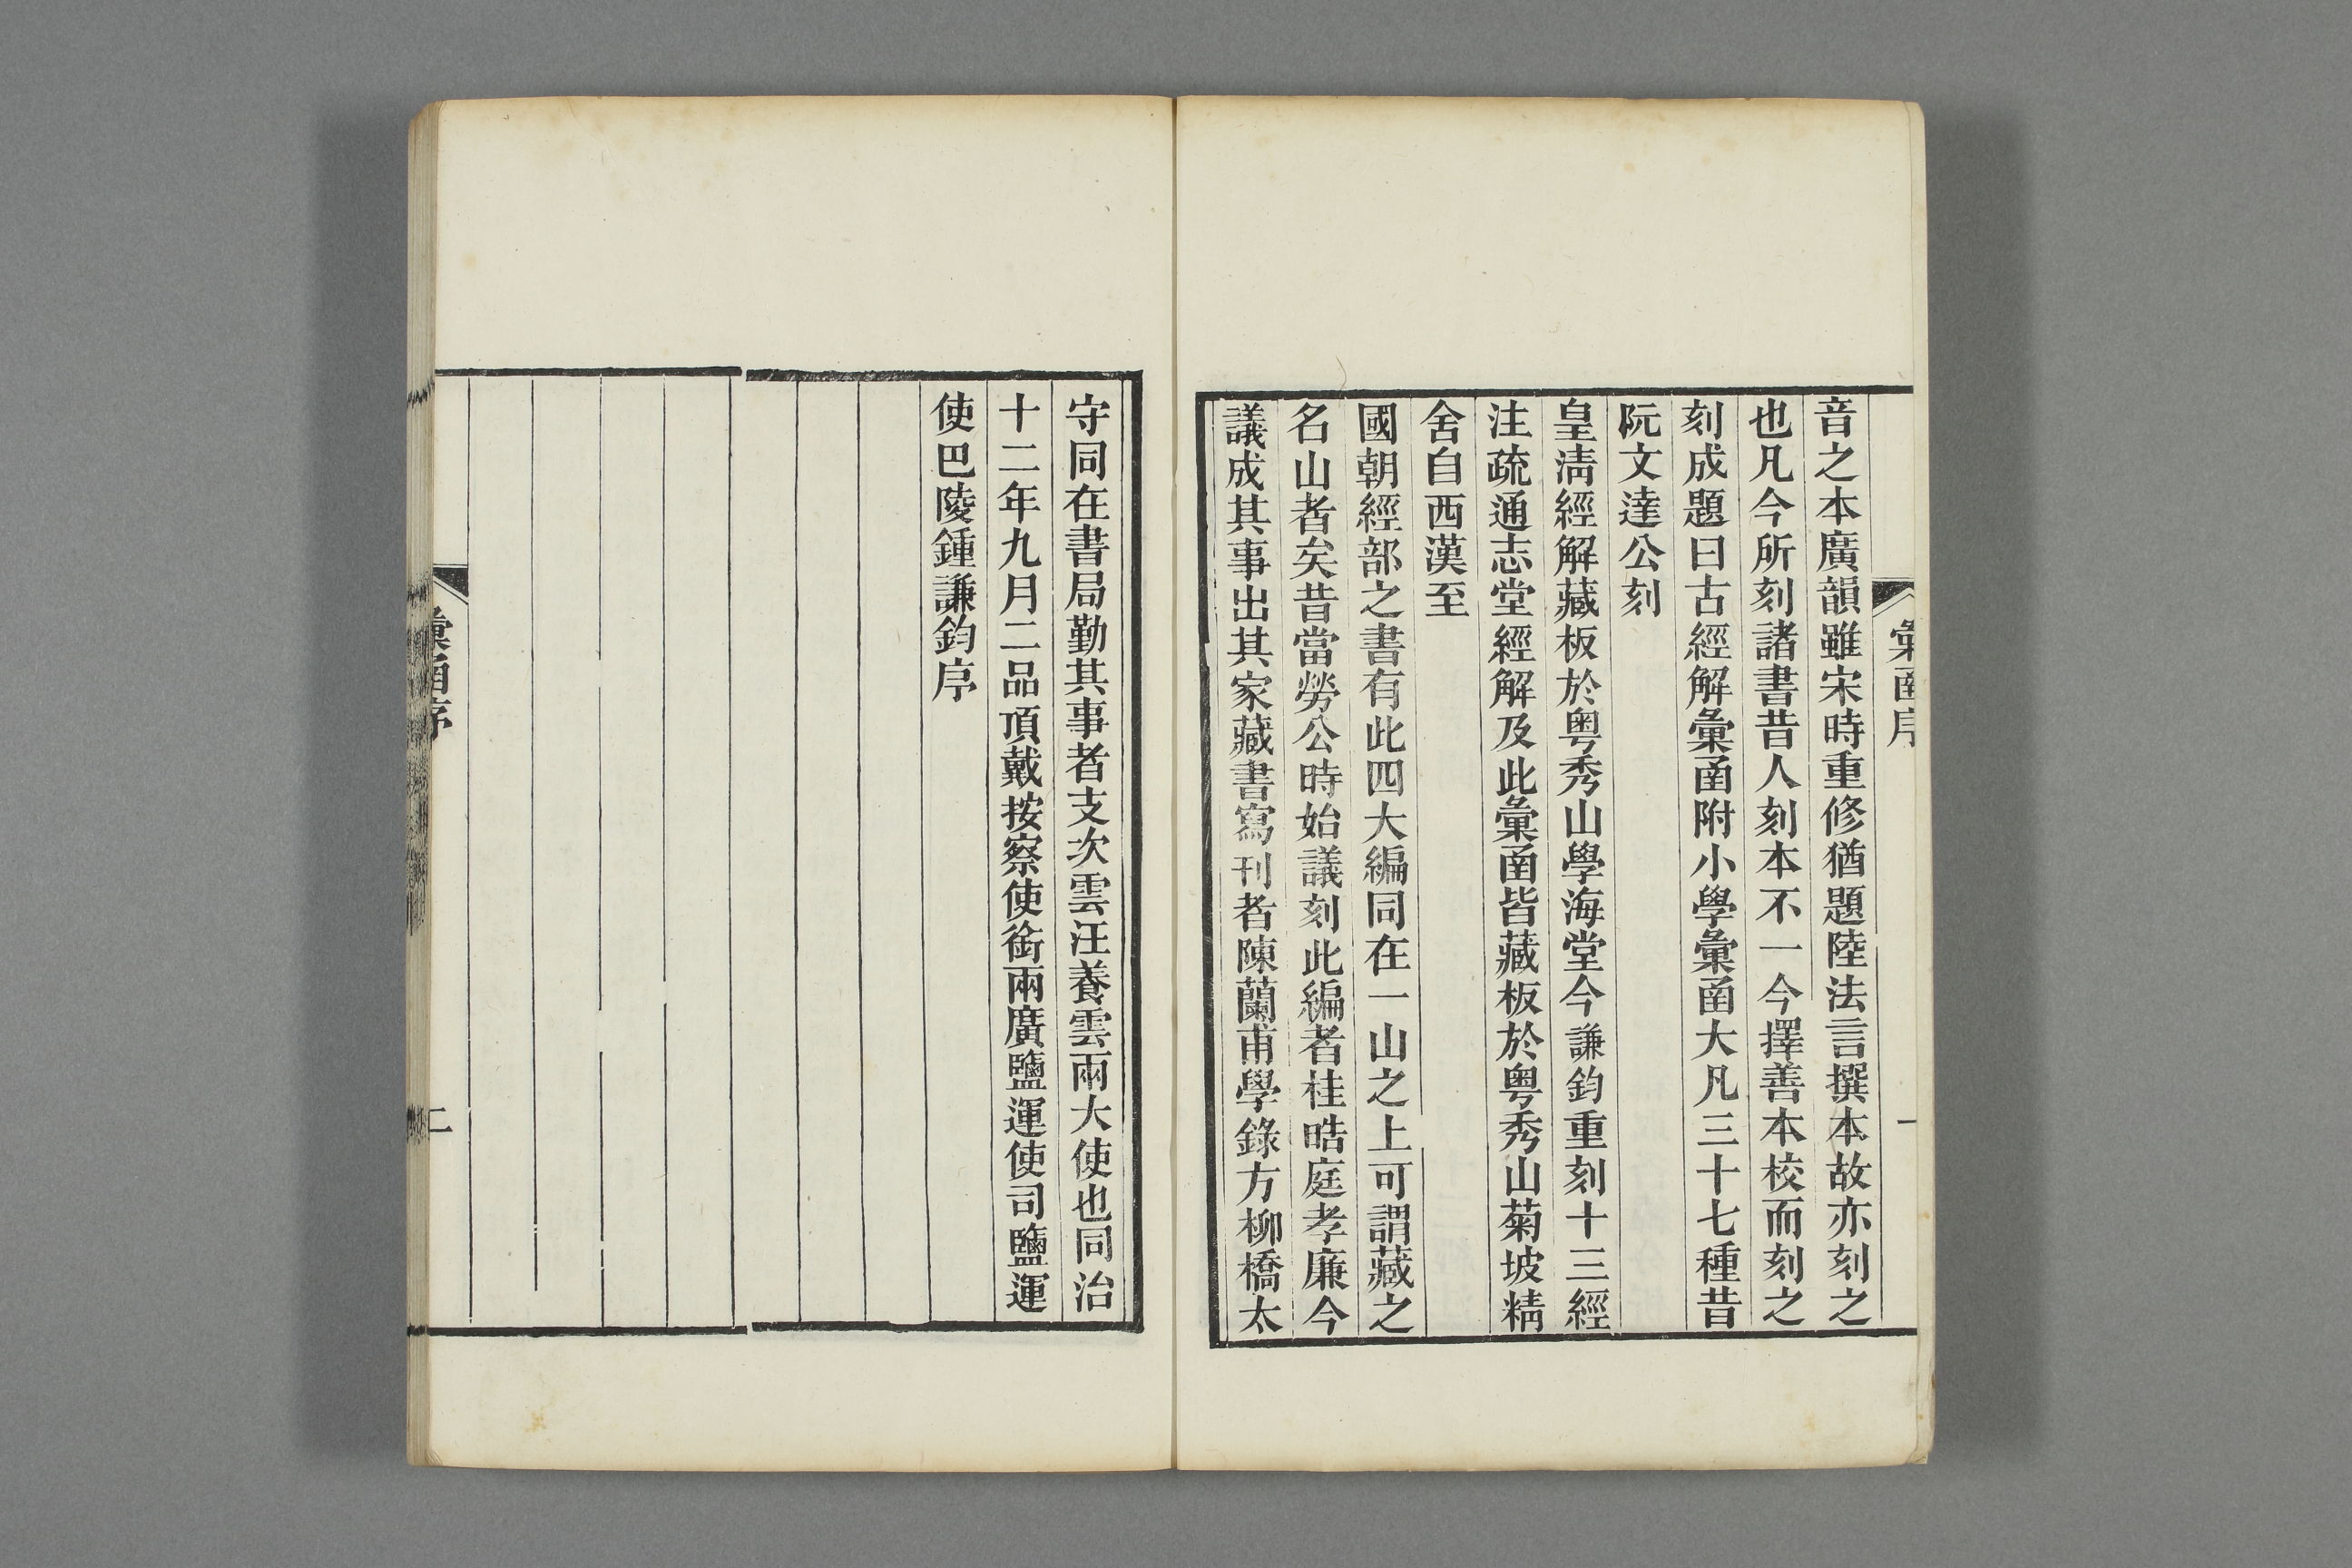 彙函序
一
音之本廣韻雖宋時重修猶題陸法言撰本故亦刻之
也凡今所刻諸書昔人刻本不一今擇善本校而刻之
刻成題曰古經解彙函附小學彙函大凡三十七種昔
阮文達公刻
皇淸經解藏板於粤秀山學海堂今謙鈞重刻十三經
注疏通志堂經解及此彙函皆藏板於粤秀山菊坡精
舍自西漢至
國朝經部之書有此四大編同在一山之上可謂藏之
名山者矣昔當勞公時始議刻此編者桂晧庭孝廉今
議成其事出其家藏書寫刊者陳蘭甫學錄方柳橋太
守同在書局勤其事者支次雲汪養雲兩大使也同治
十二年九月二品頂戴按察使銜兩廣鹽運使司鹽運
使巴陵鍾謙鈞序
彙函序
二